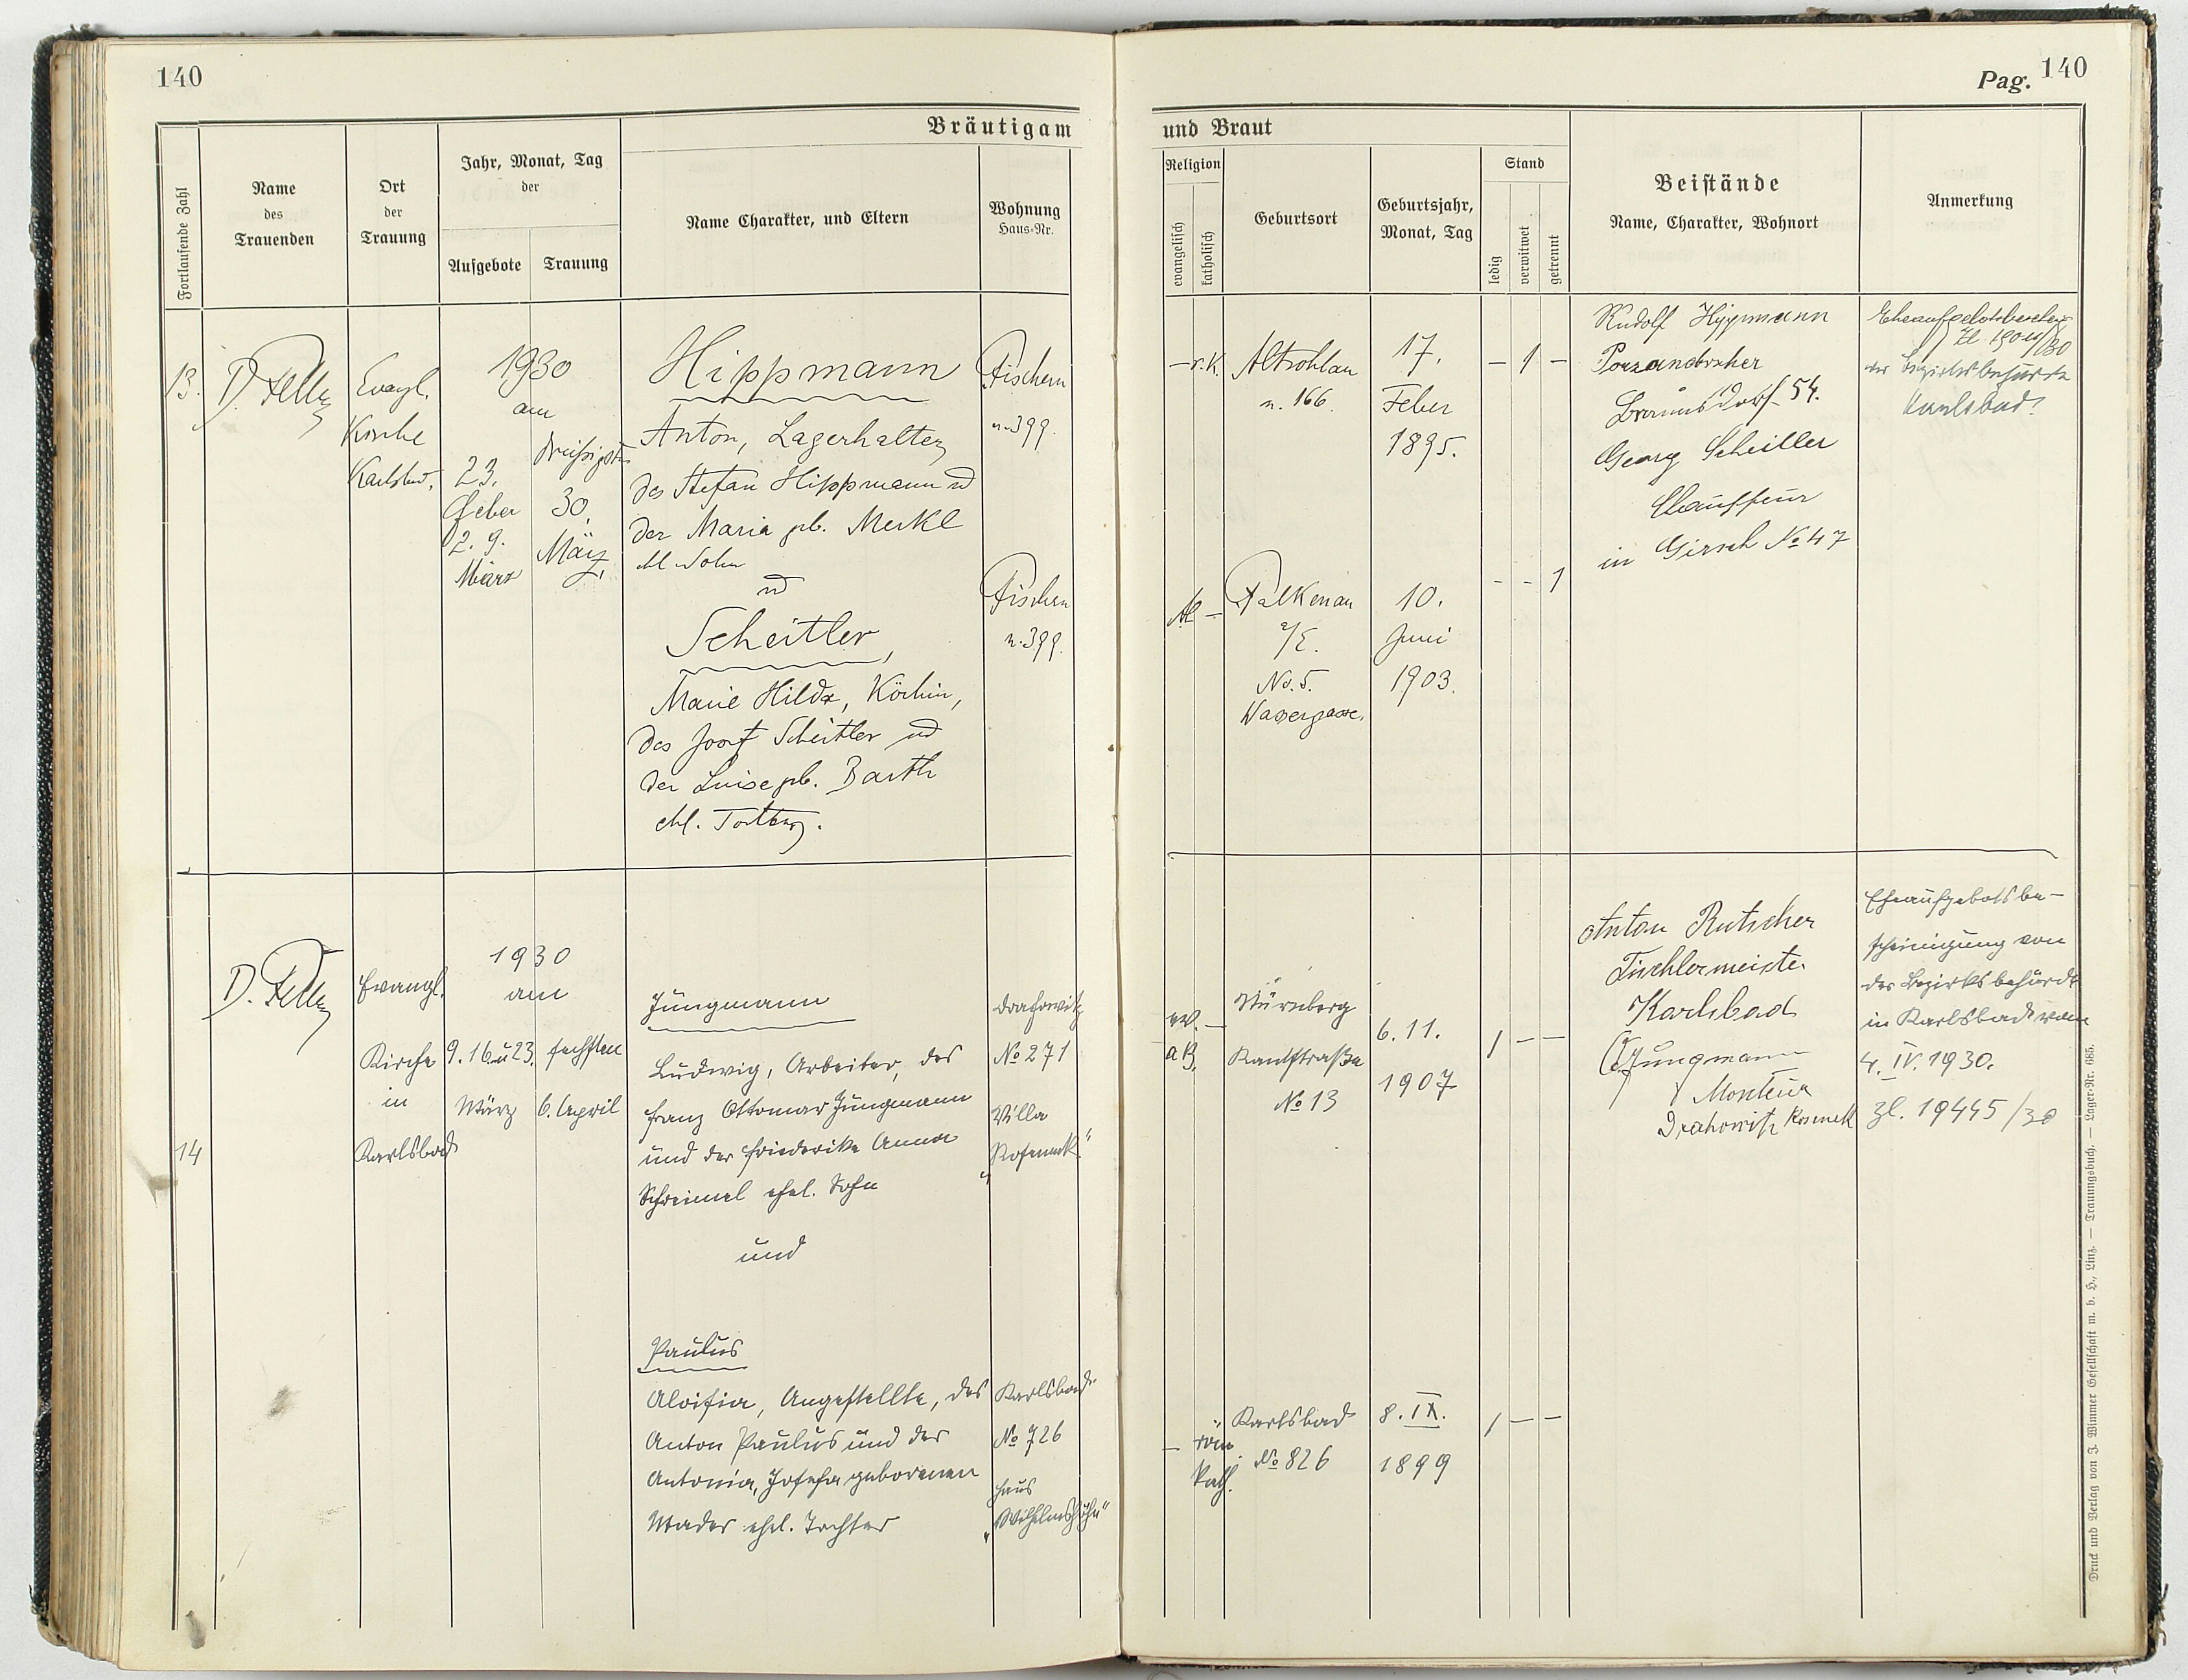 140
Bräutigam
Fortlaufende Zahl
Name
des
Trauenden
Ort
der
Trauung
Jahr, Monat, Tag
der
Aufgebote
Trauung
Name Charakter, und Eltern
Wohnung
Haus-Nr.
13.
Evangl.
Kirche
1930
am
23.
Feber
2. 9.
März
dreißigsten
30.
März
Hippmann
Anton, Lagerhalter
des Stefan Hippmann ud
der Maria gb. Merkl
ehl Sohn
ud
Scheitler,
Marie Hilda, Köchin,
des Josef Scheitler ud
der Luise gb. Barth
ehl. Tochter.
Fischern
n. 399.
Fischern
n. 399.
14
Evangl.
Kirche
in
Karlsbad
1930
am
9. 16. u 23.
März
sechsten
6. April
Jungmann
Ludwig, Arbeiter, des
Franz Ottomar Jungmann
und der Friederike Anna
Schreimel ehel. Sohn
und
Paulus
Aloisia, Angestellte, des
Anton Paulus und der
Antonia, Josefa geborenen
Mader ehel. Tochter
Drahowitz
No 271
Villa
„Roseneck“
Karlsbad
No 726
Haus
„Wilhelmshöhe“
Pag. 140
und Braut
Religion
evangelisch
katholisch
Geburtsort
Geburtsjahr,
Monat, Tag
Stand
ledig
verwitwet
getrennt
Beistände
Name, Charakter, Wohnort
Anmerkung
— r. K.
Altrohlau
n. 166.
17.
Feber
1895.
— 1 —
Rudolf Hippmann
54.
Georg Scheitler
Chauffeur
in Girsch No 47
der Bezirksbehörde
Karlsbad.
Falkenau
a/E.
No. 5.
Wassergasse.
10.
Juni
1903.
- - 1
ev. —
a B.
Nürnberg
Kantstraße
No 13
6. 11.
1907
1 — —
Anton Rutscher
Tischlermeister
Karlsbad
Jungmann
Monteur
Drahowitz
Eheaufgebotsbe-
scheinigung von
der Bezirksbehörde
in Karlsbad vom
4. IV. 1930.
Zl. 19445/30
— röm.
kath.
Karlsbad
No 826
8. IX.
1899
1 — —
Druck und Verlag von J. Wimmer Gesellschaft m. b. H., Linz. — Trauungsbuch. — Lager-Nr. 685.